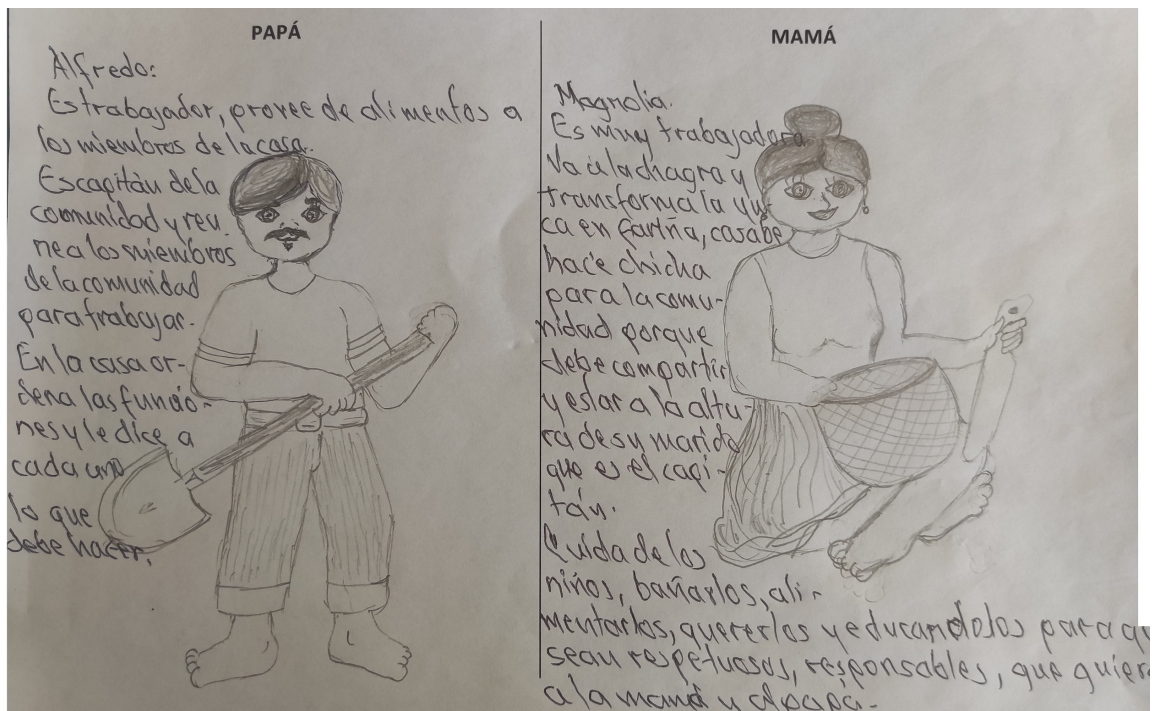 PAPÁ
Alfredo:
Es trabajador, provee de alimentos a
los miembros de la casa.
Es capitán de la
comunidad y reu
ne a los miembros
de la comunidad
para trabajar.
En la casa or-
dena las funcio-
nes y le dice a
cada uno
lo que
debe hacer.
MAMÁ
Magnolia.
Es muy trabajadora
Va a la chagra y
transforma la yu
ca en fariña, casabe
hace chicha
para la comu-
nidad porque
debe compartir
y estar a la altu-
ra de su marido
que es el capi-
tán.
Cuida de los
niños, bañarlos, ali-
mentarlos, quererlos y educandolos para qu
sean respetuosos, responsables, que quier
a la mamá y al papá.